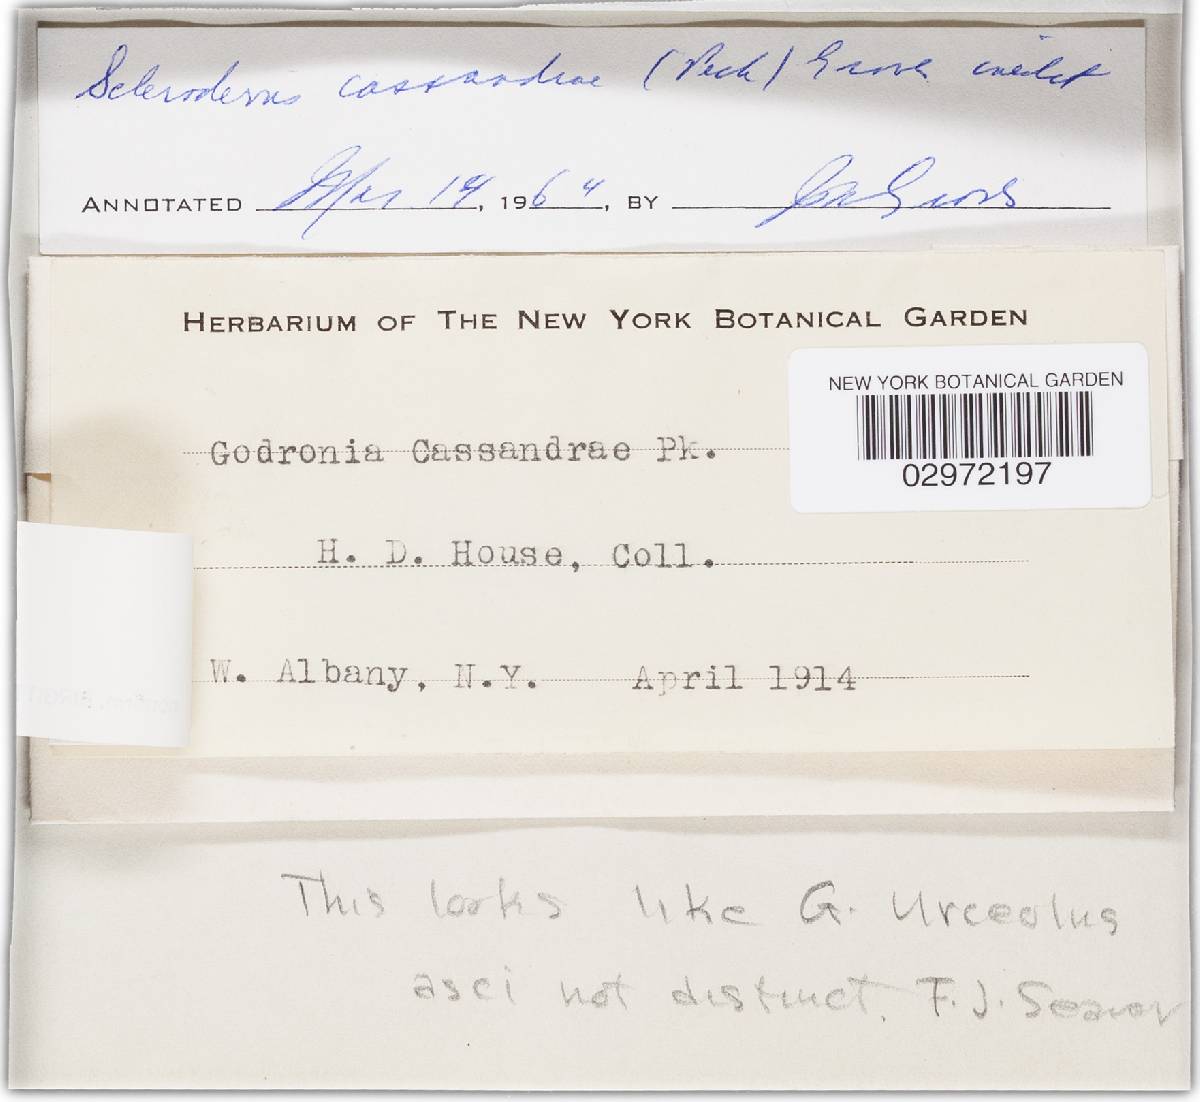 Scleroderris cassandrae (Peck) Groves inedit
ANNOTATED Mar 19, 1964, BY JW Groves
HERBARIUM OF THE NEW YORK BOTANICAL GARDEN
NEW YORK BOTANICAL GARDEN
02972197
Godronia Cassandrae Pk.
H. D. House, Coll.
W. Albany, N.Y. April 1914
This looks like G. Urceolus
asci not distinct. F.J. Seaver